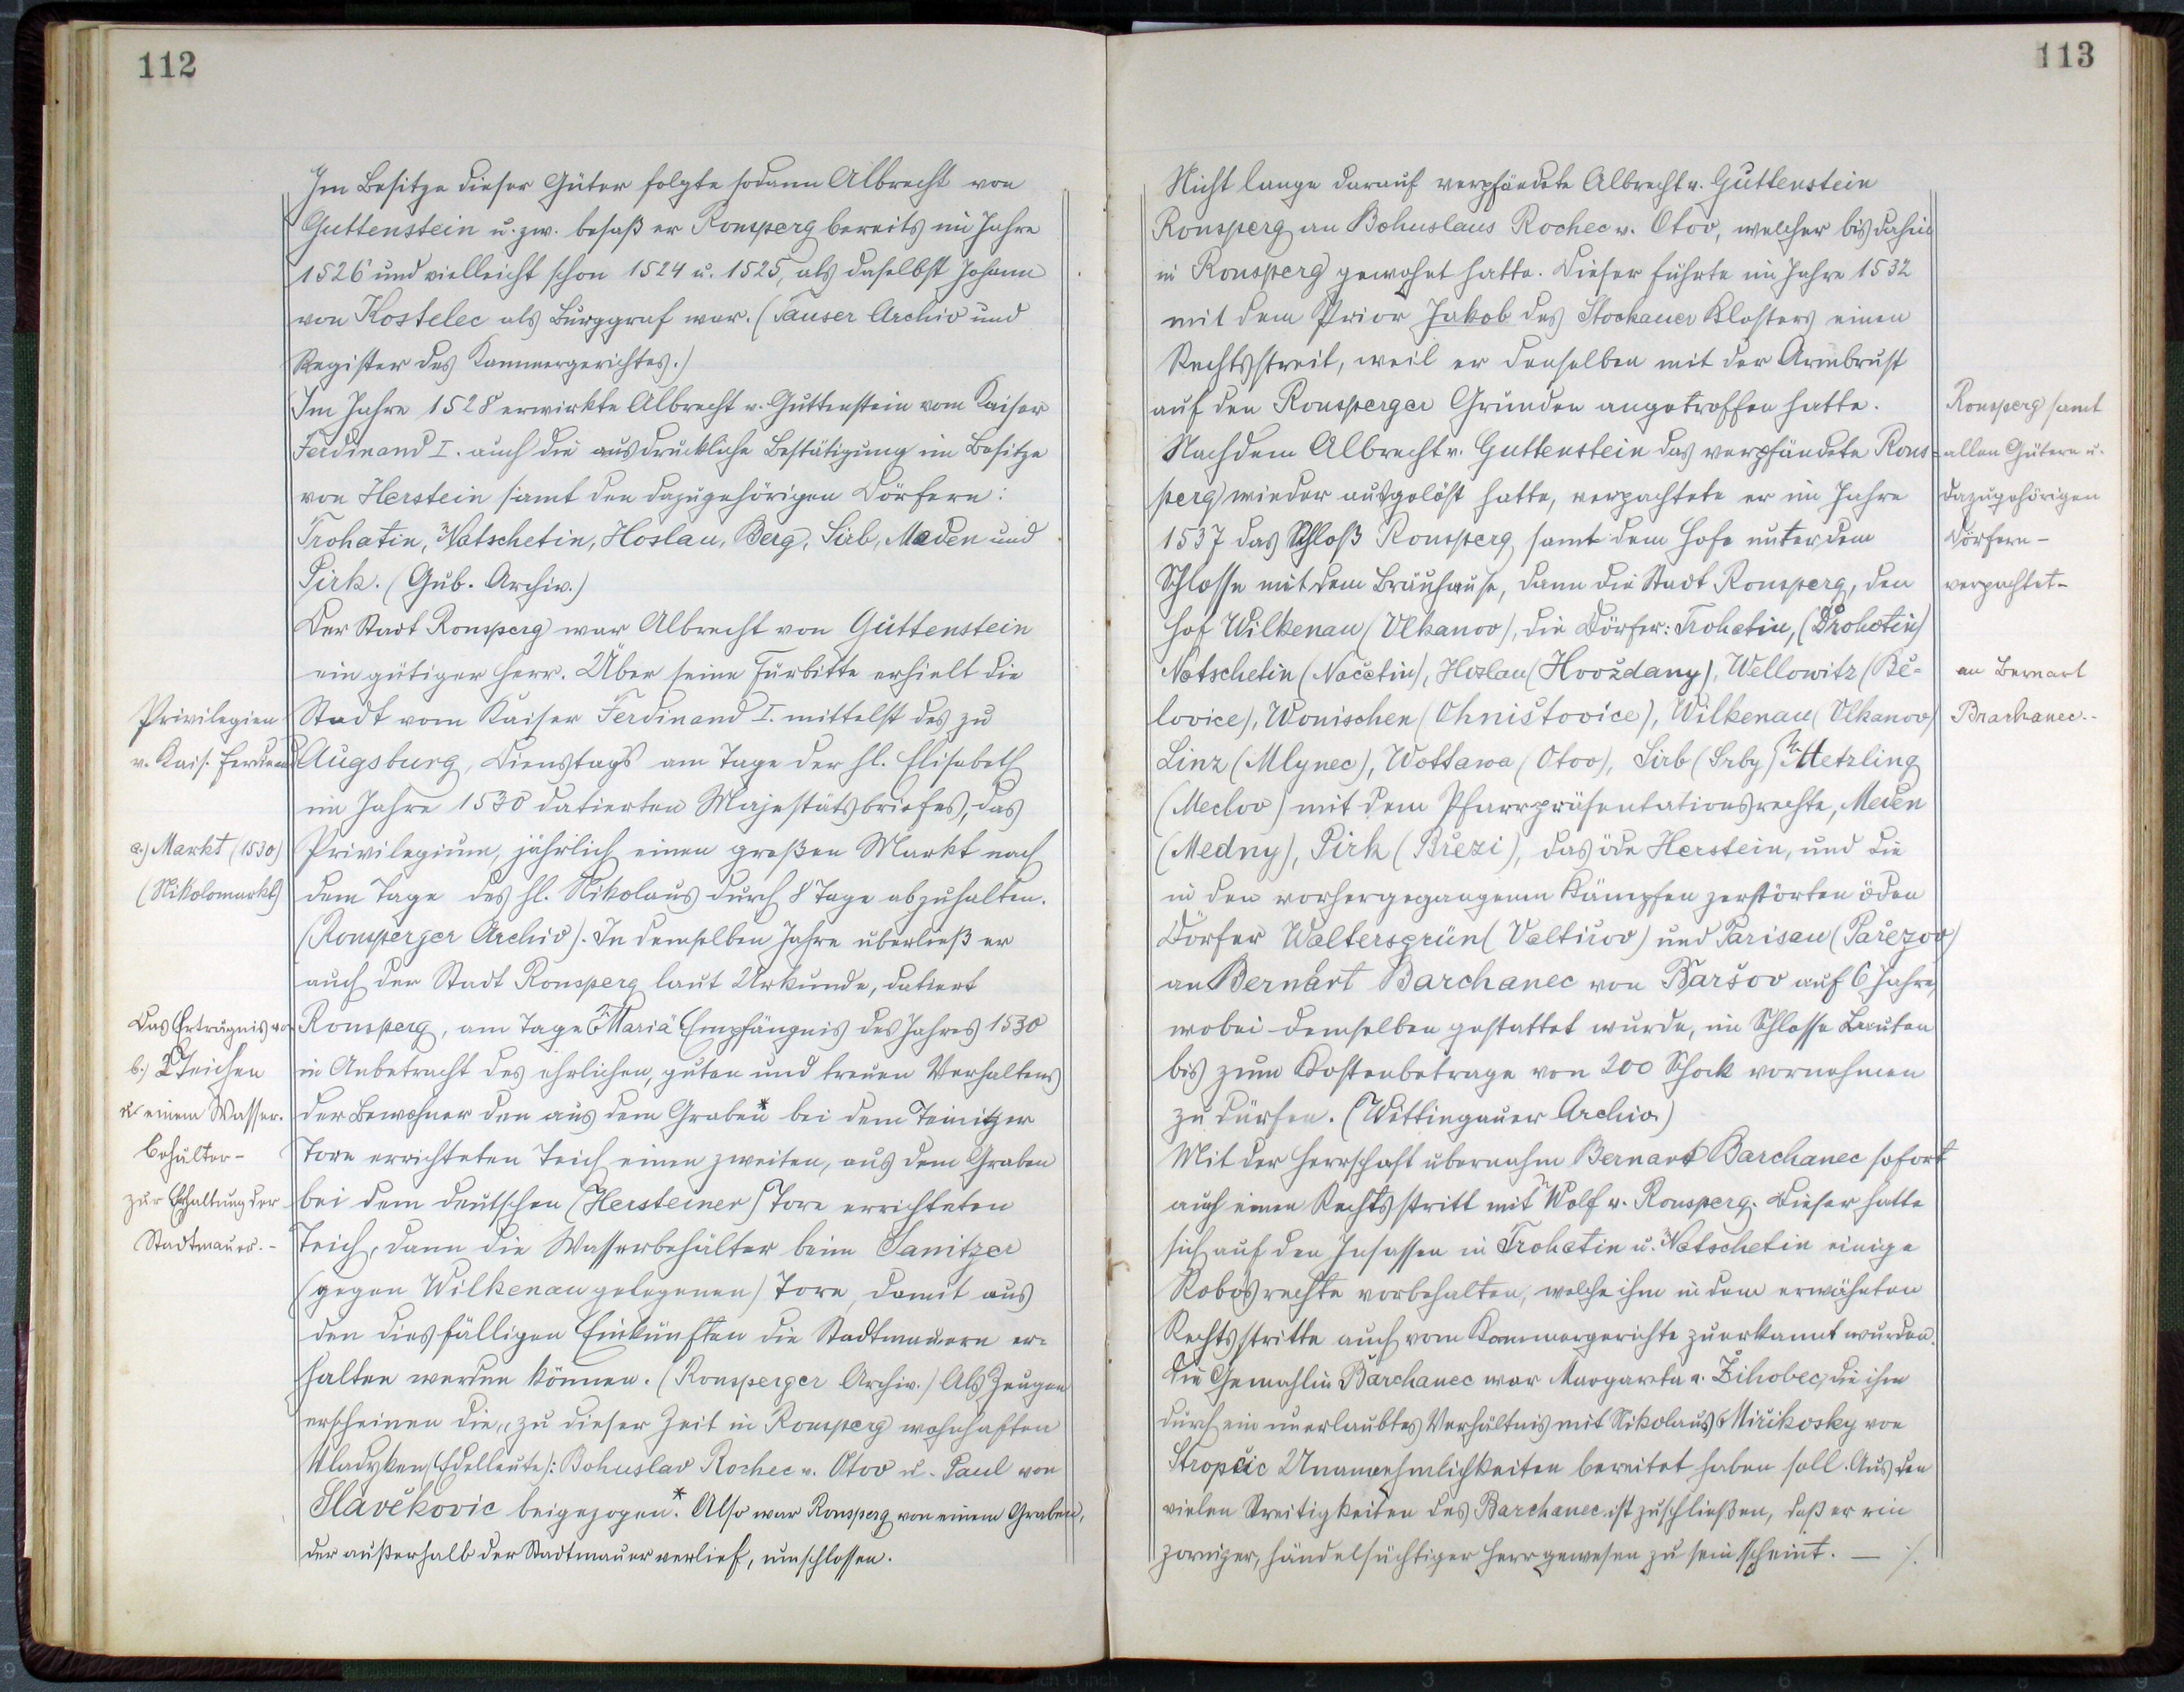 112
Im Besitze dieser Güter folgte sodann Albrecht von
Guttenstein u. zw. besaß er Ronsperg bereits im Jahre
1526 und vielleicht schon 1524 u. 1525, als daselbst Johann
von Kostelec als Burggraf war. (Tauser Archiv und
Register des Kammergerichtes.)
Im Jahre 1528 erwirkte Albrecht v. Guttenstein vom Kaiser
Ferdinand I. auch die ausdrückliche Bestätigung im Besitze
von Herstein samt den dazugehörigen Dörfern:
Trohatin, Natschetin, Hoslau, Berg, Sirb, Meden und
Pirk. (Gub. Archiv.)
Der Stadt Ronsperg war Albrecht von Guttenstein
ein gütiger Herr. Über seine Fürbitte erhielt die
Privilegien
Stadt vom Kaiser Ferdinand I. mittelst des zu
v. Kais. Ferdinand
Augsburg, Dienstags am Tage der hl. Elisabeth
im Jahre 1530 datierten Majestätsbriefes, das
a.) Markt (1530)
Privilegium, jährlich einen großen Markt nach
(Nikolomarkt)
dem Tage des hl. Nikolaus durch 8 Tage abzuhalten.
(Ronsperger Archiv). In demselben Jahre überließ er
auch der Stadt Ronsperg laut Urkunde, datiert
Das Erträgnis von
Ronsperg, am Tage Mariä Empfängnis des Jahres 1530
b.) 2 Teichen
in Anbetracht des ehrlichen, guten und treuen Verhaltens
u. einem Wasser-
der Bewohner den aus dem Graben* bei dem Teinitzer
behälter -
Tore errichteten Teich einen zweiten, aus dem Graben
zur Erhaltung der
bei dem deutschen (Hersteiner) Tore errichteten
Stadtmauer. -
Teich, dann die Wasserbehälter beim Sanitzer
(gegen Wilkenau gelegenen) Tore, damit aus
den diesfälligen Einkünften die Stadtmauern er-
halten werden können. (Ronsperger Archiv.) Als Zeugen
erscheinen die, zu dieser Zeit in Ronsperg wohnhaften
Wladyken (Edelleute): Bohuslav Rochec v. Otov u. Paul von
Slavěkovic beigezogen. * Also war Ronsperg von einem Graben,
der außerhalb der Stadtmauer verlief, umschlossen.
113
Nicht lange darauf verpfändete Albrecht v. Guttenstein
Ronsperg an Bohuslaus Rochec v. Otov, welcher bis dahin
in Ronsperg gewohnt hatte. Dieser führte im Jahre 1532
mit dem Prior Jakob des Stockauer Klosters einen
Rechtsstreit, weil er denselben mit der Armbrust
auf den Ronsperger Gründen angetroffen hatte.
Ronsperg samt
Nachdem Albrecht v. Guttenstein das verpfändete Rons-
allen Gütern u.
perg wieder ausgelöst hatte, verpachtete er im Jahre
dazugehörigen
1537 das Schloß Ronsperg samt dem Hofe unter dem
Dörfern -
Schlosse mit dem Bräuhause, dann die Stadt Ronsperg, den
verpachtet -
Hof Wilkenau (Vlkanov), die Dörfer: Trohatin, (Drohotin)
Natschetin (Načetin), Hoslau (Hvoždany), Wellowitz (Bě-
an Bernart
lovice), Wonischen (Ohništovice), Wilkenau (Vlkanov)
Brarhanec. -
Linz (Mlynec), Wottawa (Otov), Sirb (Srby) u. Metzling
(Meclov) mit dem Pfarrpräsentationsrechte, Meden
(Medny), Pirk (Březi), das öde Herstein, und die
in den vorhergegangenen Kämpfen zerstörten öden
Dörfer Waltersgrün (Valtiřov) und Parisau (Pařezov)
an Bernart Barchanec von Baršov auf 6 Jahre,
wobei demselben gestattet wurde, im Schlosse Bauten
bis zum Kostenbetrage von 200 Schock vornehmen
zu dürfen. (Wittingauer Archiv)
Mit der Herrschaft übernahm Bernart Barchanec sofort
auch einen Rechtsstritt mit Wolf v. Ronsperg. Dieser hatte
sich auf den Insassen in Trohatin u. Natschetin einige
Robotsrechte vorbehalten, welche ihm in dem erwähnten
Rechtsstritte auch vom Kammergerichte zuerkannt wurden.
Die Gemahlin Barchanec war Margareta v. Žihobec, die ihm
durch ein unerlaubtes Verhältnis mit Nikolaus Miřikosky von
Stropčic Unannehmlichkeiten bereitet haben soll. Aus den
vielen Streitigkeiten des Barchanec ist zu schließen, daß er ein
zorniger, händelsüchtiger Herr gewesen zu sein scheint. — ./.